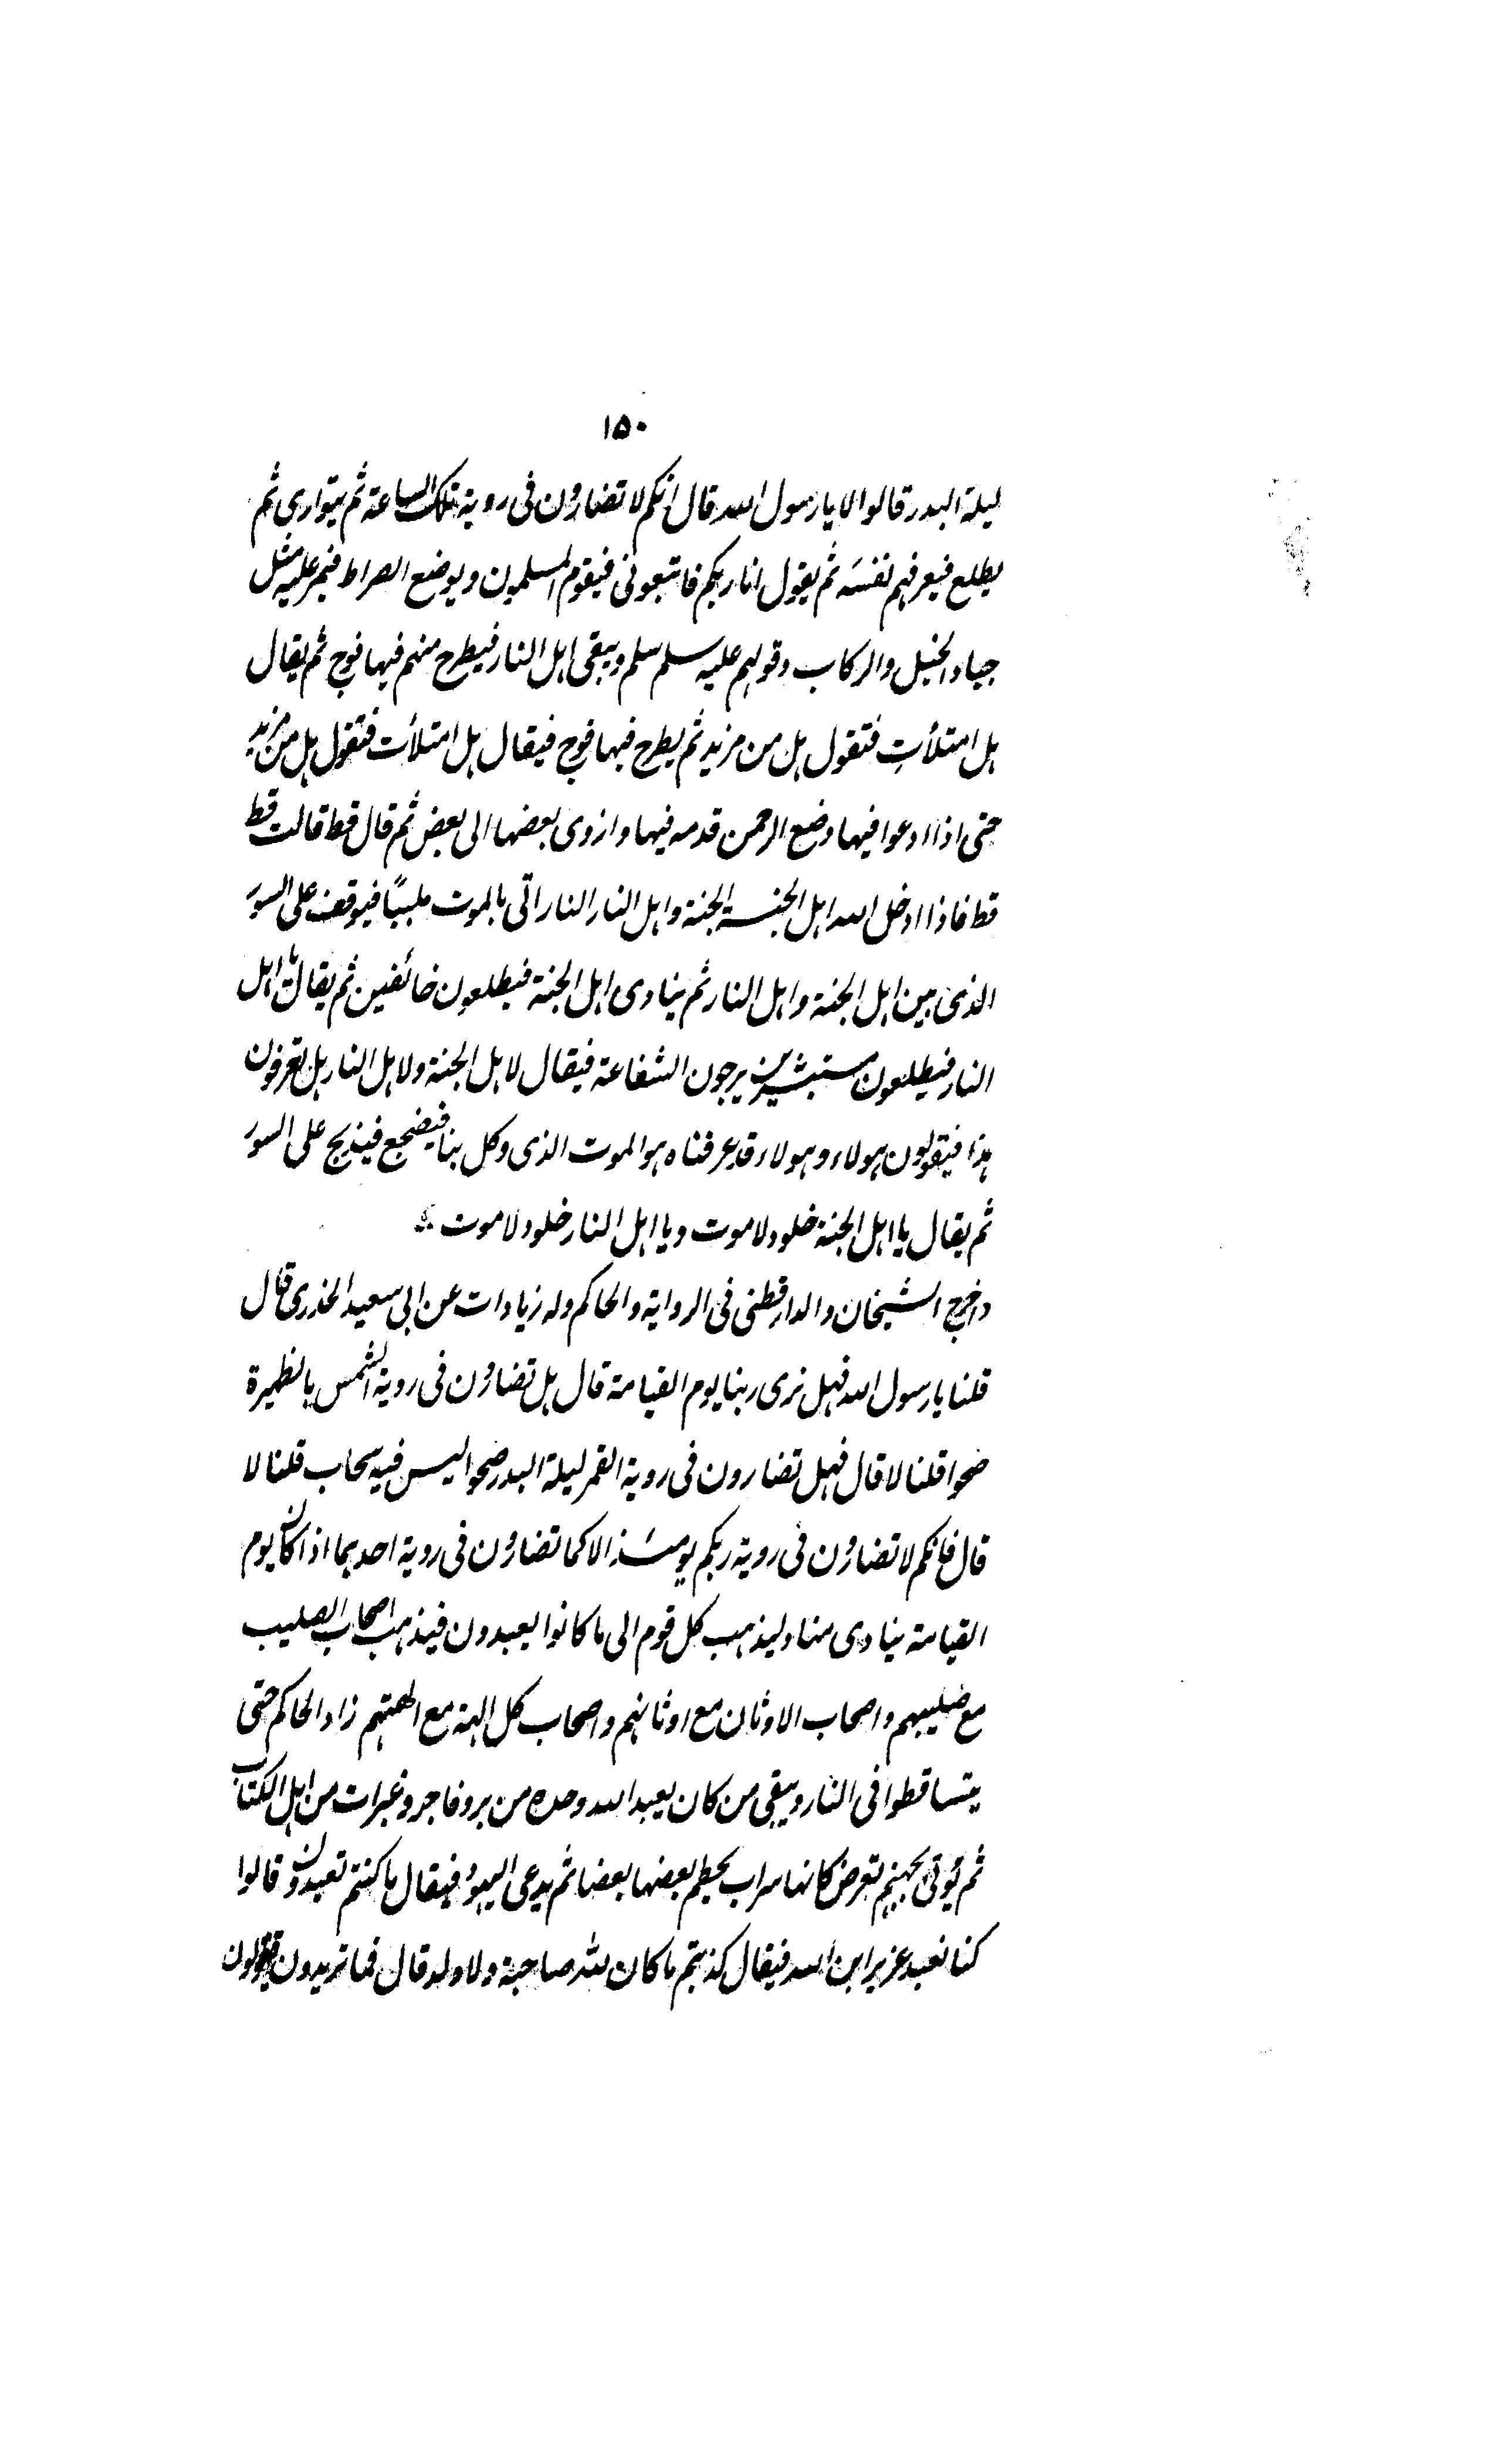 ۱۵۰
ليلة البدر قالوا لا يا رسول الله قال انكم لا تضارون فى روية تلك الساعة ثم يتوارى ثم
يطلع فيعرفهم نفسَه ثم يقول انا ربكم فاتبعونى فيقوم المسلمين ويوضع الصراط فيمر عليه مثل
جياد الخيل والركاب وقولهم عليه سلم سلم ويبقى اهل النار فيطرح منهم فيها فوج ثم يقال
هل امتلأتِ فتقول هل من مزيد ثم يطرح فيها فوج فيقال هل امتلأت فتقول هل من مزيد
حتى اذا ادعوا فيها وضع الرحمن قدمه فيها وازوى بعضها الى بعض ثم قال قط قالت قط
قط فاذا ادخل الله اهل الجنة الجنة واهل النار النار اتى بالموت ملبيًا فيوقف على السور
الذى بين اهل الجنة واهل النار ثم ينادى اهل الجنة فيطلعون خائفين ثم يقال يا اهل
النار فيطلعون مستبشرين يرجون الشفاعة فيقال لاهل الجنة ولاهل النار هل تعرفون
هذا فيقولون هولاء وهولاء قد عرفناه هو الموت الذى وكل بنا فيضجع فيذبح على السور
ثم يقال يا اهل الجنة خلود لا موت ويا اهل النار خلود لا موت
واخرج الشيخان والدارقطنى فى الرواية والحاكم وله زيادات عن ابى سعيد الخذرى قال
قلنا يا رسول الله فهل نرى ربنا يوم القيامة قال هل تضارون فى روية الشمس بالظهيرة
صحوا قلنا لا قال فهل تضارون فى روية القمر ليلة البدر صحوا ليس فيه سحاب قلنا لا
قال فانكم لا تضارون فى روية ربكم يومئذ الا كما تضارون فى روية احدهما اذا كان يوم
القيامة ينادى مناد ليذهب كل قوم الى ما كانوا يعبدون فيذهب اصحاب الصليب
مع صليبهم واصحاب الاوثان مع اوثانهم واصحاب كل الهة مع الهتهم زاد الحاكم حتى
يتساقطوا فى النار ويبقى من كان يعبد الله وحده من بر وفاجر وغبرات من اهل الكتاب
ثم يؤتى بجهنم تعرض كانها سراب يحطم بعضها بعضا ثم يدعى اليهود فيقال ما كنتم تعبدون قالوا
كنا نعبد عزير ابن الله فيقال كذبتم ما كان لله صاحبة ولا ولد قال فما تريدون فيقولون